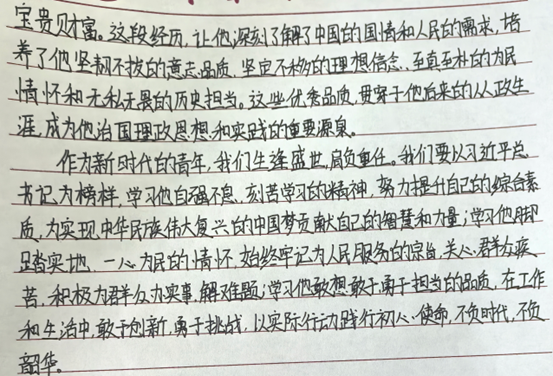 宝贵财富。这段经历,让他深刻了解了中国的国情和人民的需求,培
养了他坚韧不拔的意志品质、坚定不移的理想信念、至真至朴的为民
情怀和无私无畏的历史担当。这些优秀品质,贯穿于他后来的从政生
涯,成为他治国理政思想和实践的重要源泉。
作为新时代的青年,我们生逢盛世,肩负重任。我们要以习近平总
书记为榜样,学习他自强不息、刻苦学习的精神,努力提升自己的综合素
质,为实现中华民族伟大复兴的中国梦贡献自己的智慧和力量;学习他脚
踏实地、一心为民的情怀,始终牢记为人民服务的宗旨,关心群众疾
苦,积极为群众办实事,解难题;学习他敢想敢干,勇于担当的品质,在工作
和生活中,敢于创新,勇于挑战,以实际行动践行初心使命,不负时代,不负
韶华。